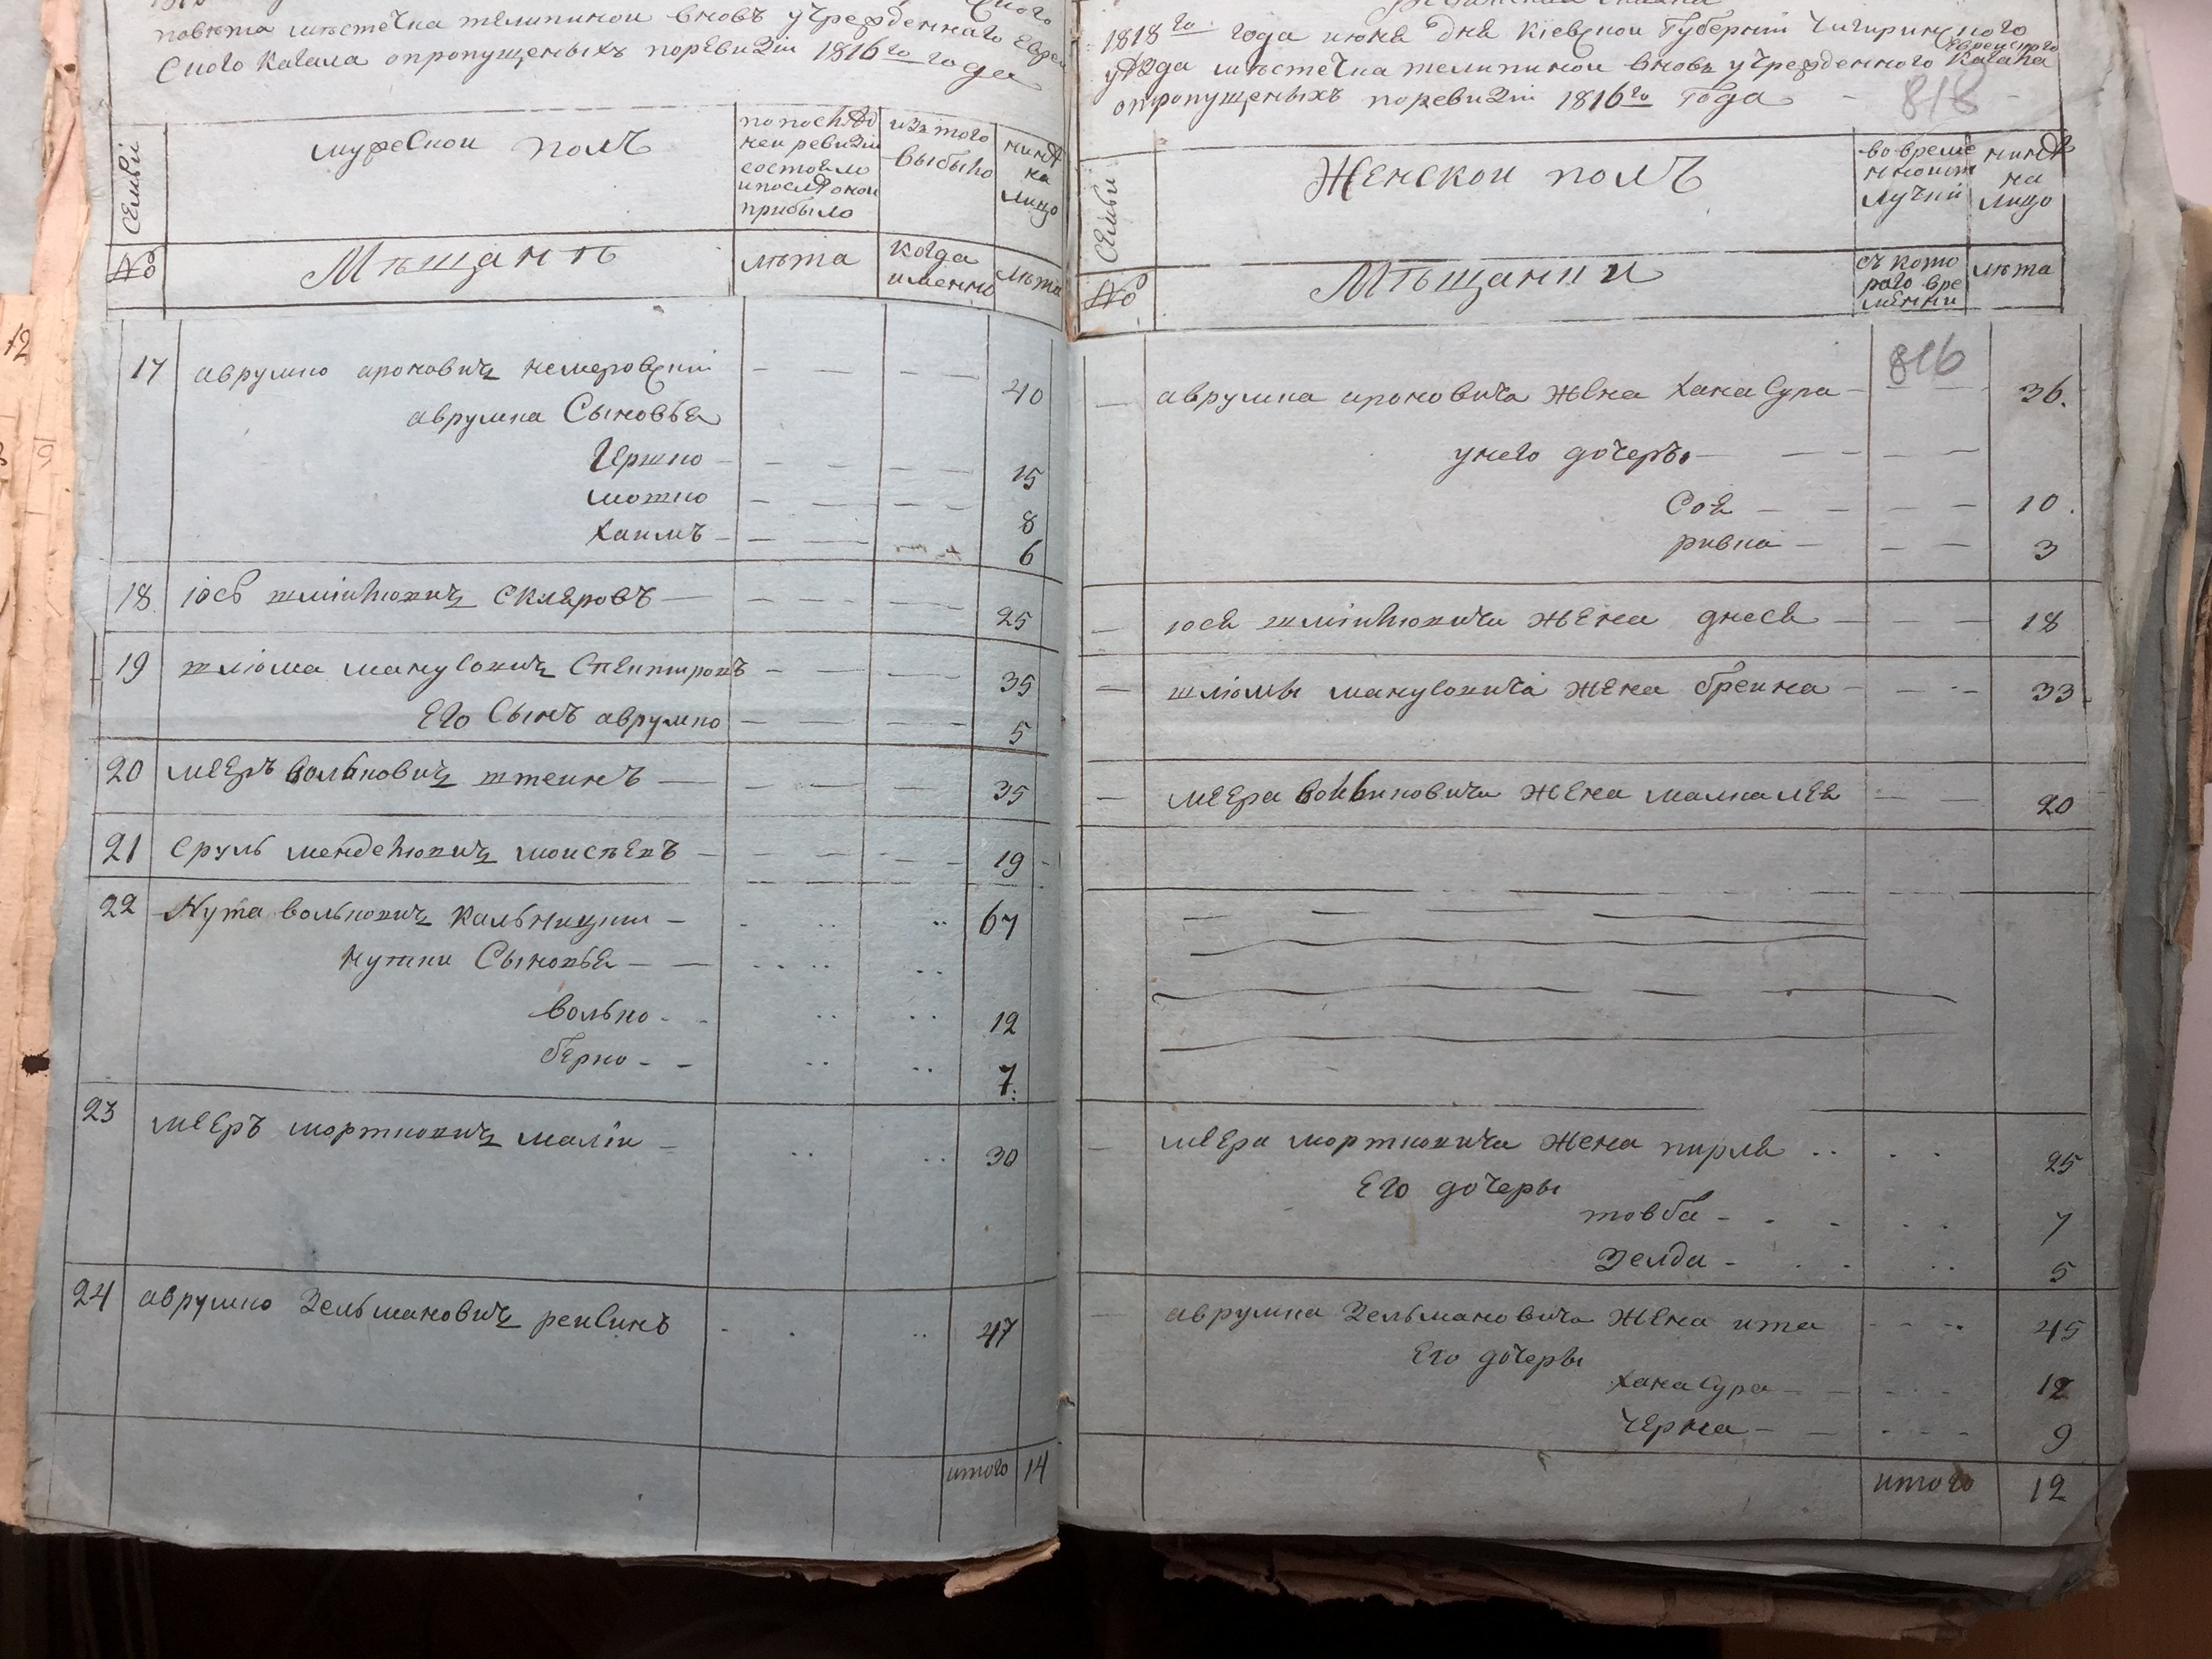 повета местечка телипинои вновъ учрежденнаго Еврей
ского кагала опропущеныхъ поревизіи 1816го года
Семьи
мужескои полъ
попослед
неи ревизіи
состояло
ипосле онои
прибыло
изъ того
выбыло
нине
на
лицо
№
Мѣщанѣ
лѣта
когда
именно
лѣта
17 аврумко ароновичъ немеровскій 40
аврумка Сыновья
Гершко 15
мошко 8
хаимъ 6
18 іось шліомовичъ Скляровъ 25
19 шліома манусовичъ 35
Его Сынъ аврумко 5
20 мееръ вольковичъ штеинъ 35
21 сруль менделіовичъ моисѣевъ 19
22 Нута вольковичъ кальницкии 67
нутки Сыновья
волько 12
берко 7
23 мееръ мортковичъ маліи 30
24 аврумко Зельмановичъ реисинъ 47
итого 14
1818го года июня дня Кіевскои Губерніи Чигиринского
уѣзда мѣстечка телипинои вновь учрежденного Еврейского Кагала
опропущеныхъ поревизіи 1816го года
818
Семьи
Женскои полъ
вовреме
нной от
лучкѣ
нинѣ
на
лицо
№
Мѣщанки
съ кото
раго вре
мѣнни
лѣта
816
аврумка ароновича жена хана Сура 36
унего дочеры
Соя 10
ривка 3
іося жена двося 18
шліомы манусовича жена бреина 33
меера вольковича жена малка лея 20
меера мортковича жена пирля 25
Его дочеры
товба 7
Зелда 5
аврумка Зельмановича жена ита 45
Его дочеры
хана Сура 12
Черна 9
итого 12